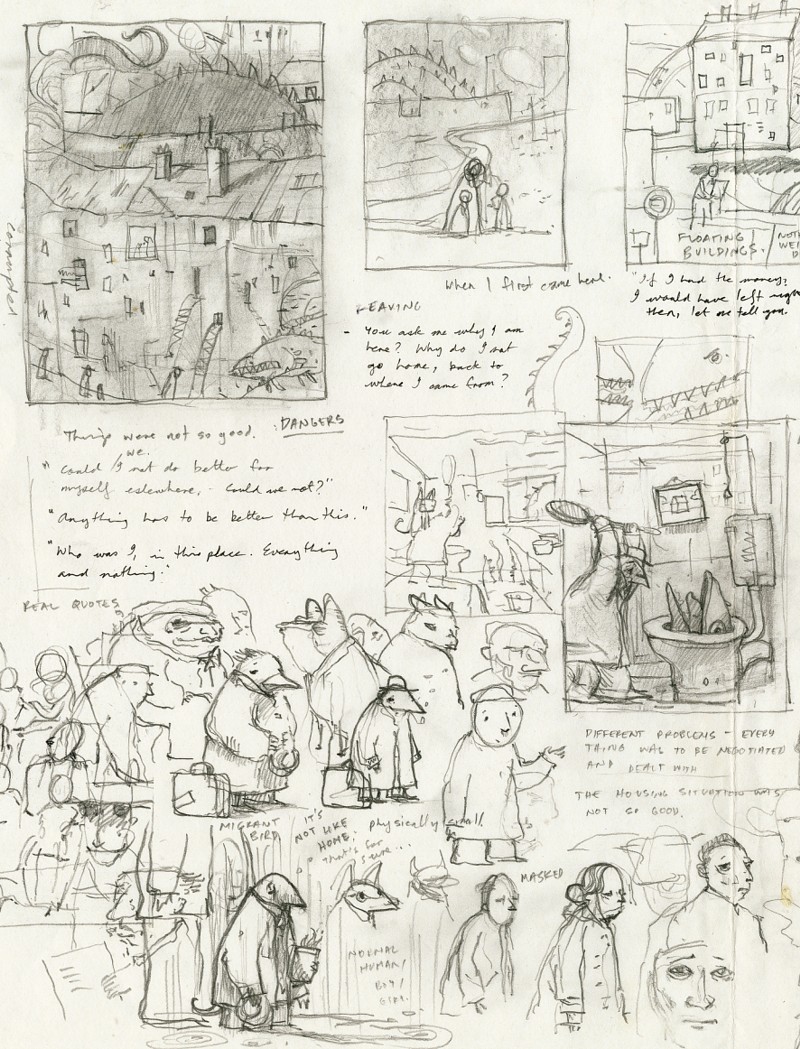 FLOATING
BUILDINGS.
When I first came here.
"If I had the money?
I would have left
then, let me tell you.
LEAVING
- You ask me why I am
here? Why do I not
go home, back to
where I came from?
Things were not so good. : DANGERS
we.
"Could I not do better for
myself eslewhere, - Could we not?"
"Anything has to be better than this."
"Who was I, in this place. Everything
and nothing."
REAL QUOTES
DIFFERENT PROBLEMS - EVERY
THING WAS TO BE NEGOTIATED
AND DEALT WITH
THE HOUSING SITUATION WAS
NOT SO GOOD.
MIGRANT
BIRD
IT'S
NOT LIKE
HOME,
that's for
sure...
physically small.
MASKED
NORMAL
HUMAN/
BOY/
GIRL.